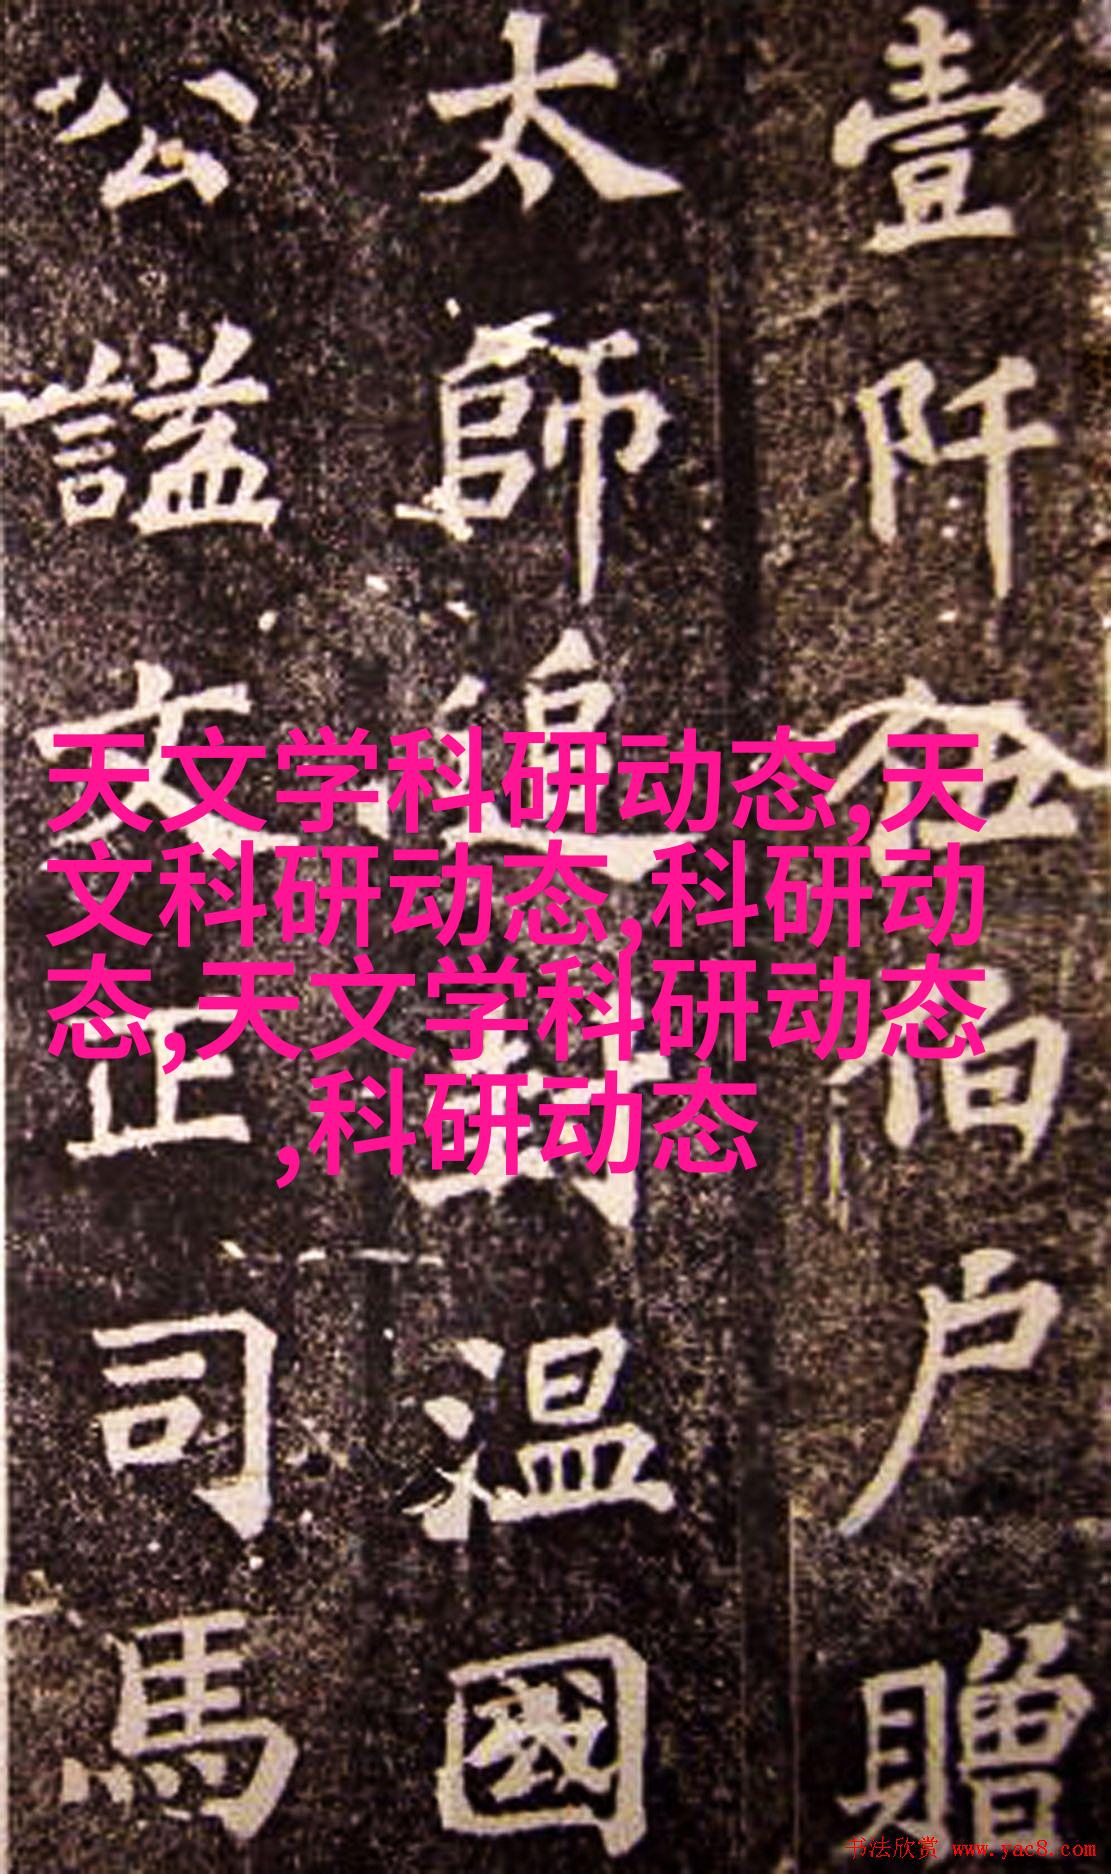 壹阡佰户贈
太師追封温國
公謚文正司馬
天文学科研动态,天
文科研动态,科研动
态,天文学科研动态
,科研动态
书法欣赏 www.yac8.com